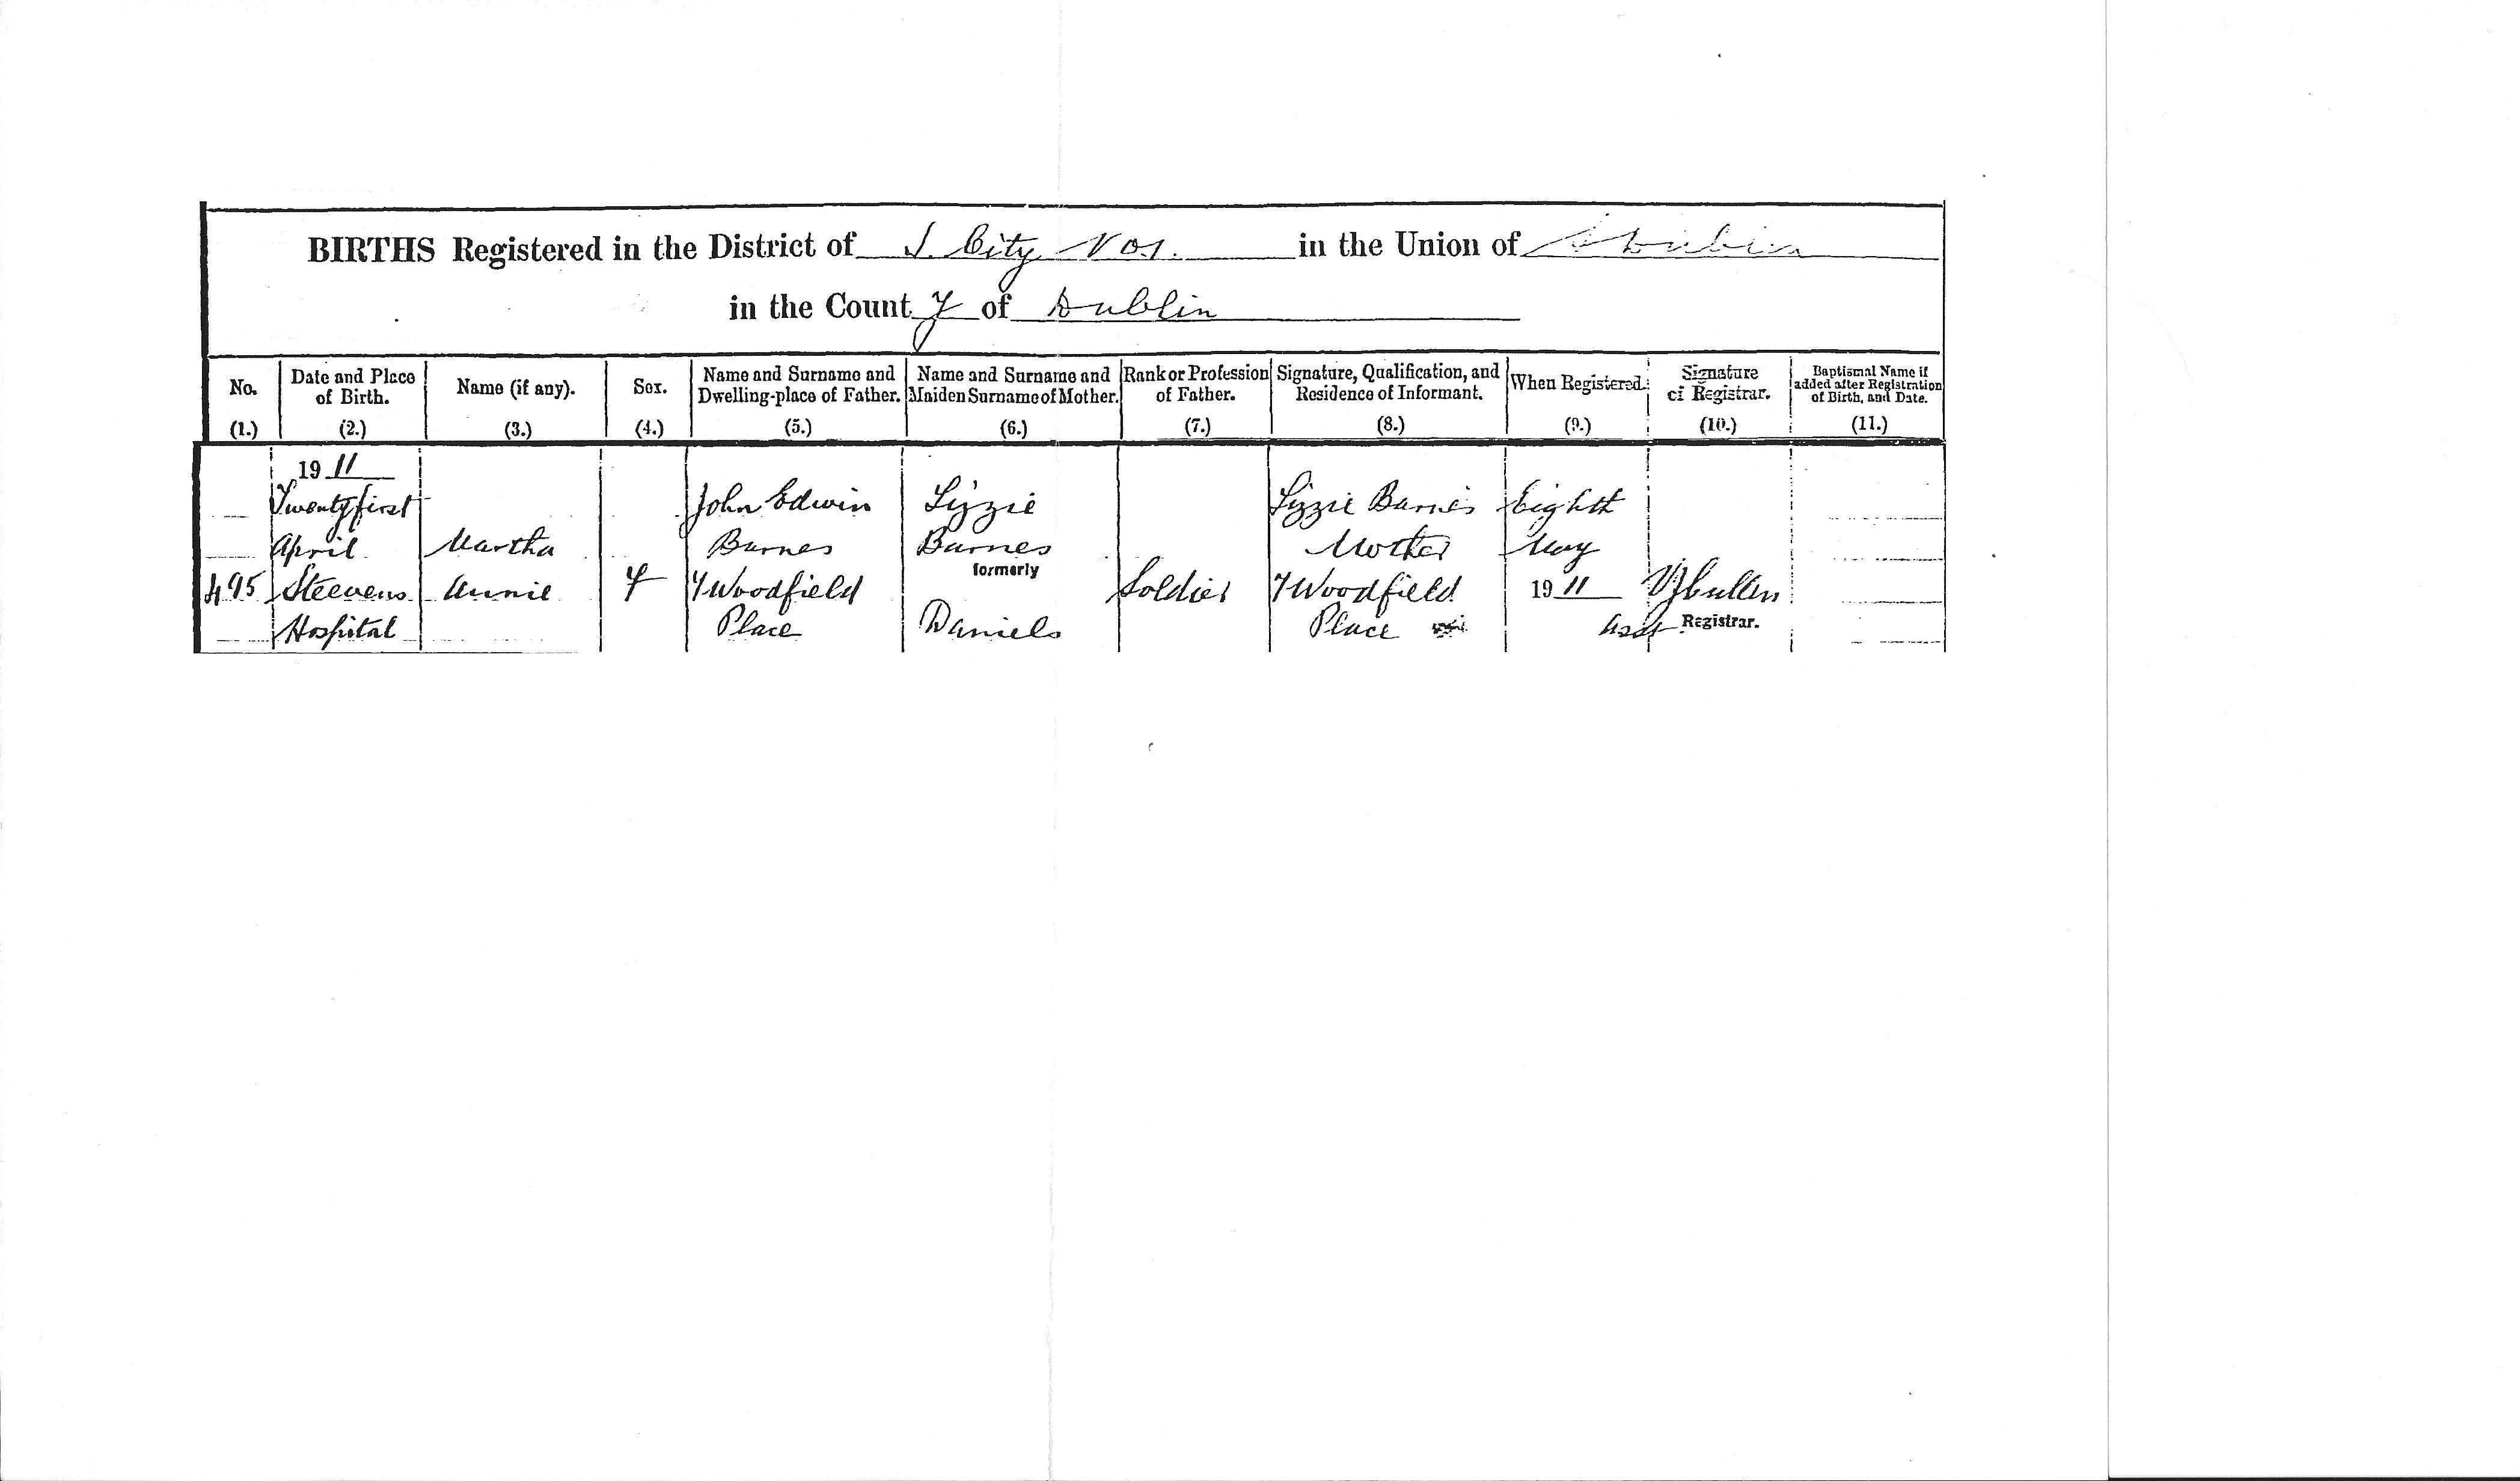 BIRTHS Registered in the District of S. City No 1. in the Union of S Dublin
in the County of Dublin
No. Date and Place Name (if any). Sex. Name and Surname and Name and Surname and Rank or Profession Signature, Qualification, and When Registered. Signature Baptismal Name if
of Birth. Dwelling-place of Father. Maiden Surname of Mother. of Father. Residence of Informant. of Registrar. added after Registration
of Birth, and Date.
(1.) (2.) (3.) (4.) (5.) (6.) (7.) (8.) (9.) (10.) (11.)
1911
Twenty first John Edwin Lizzie Lizzie Barnes Eighth
April Martha Barnes Barnes Mother May
formerly
495 Steevens Annie F 7 Woodfield Soldier 7 Woodfield 1911 Cullen
Hospital Place Daniels Place Asst Registrar.